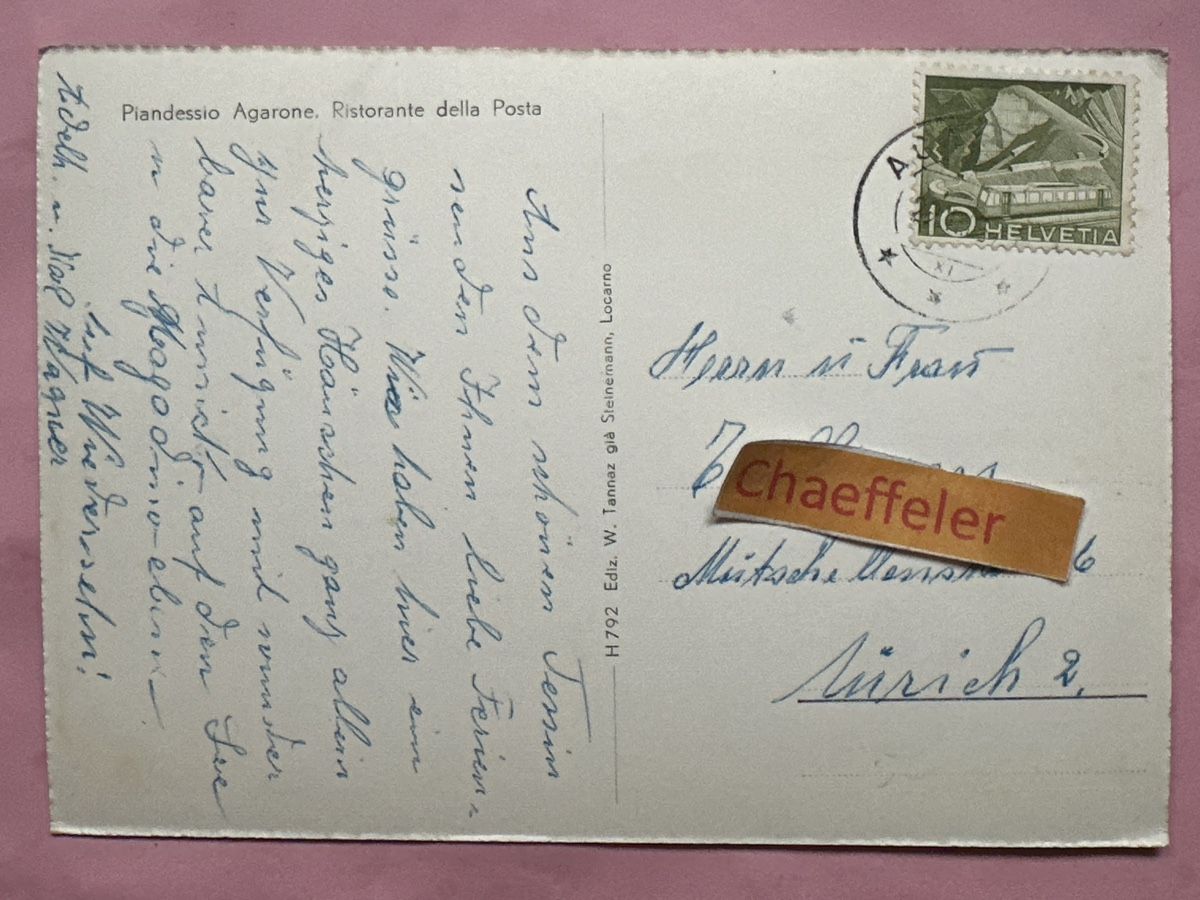 Piandessio Agarone. Ristorante della Posta
Aus dem schönen Tessin
senden Ihnen liebe Ferien-
grüsse. Wir haben hier ein
herziges Häuschen ganz allein
zur Verfügung mit wunder
barer Aussicht auf den See
u die Magadinoebene.
Auf Wiedersehn!
u. Wagner
H 792 Ediz. W. Tannaz già Steinemann, Locarno
10 HELVETIA
XI
Herrn u Frau
Chaeffeler
6
Zürich 2.